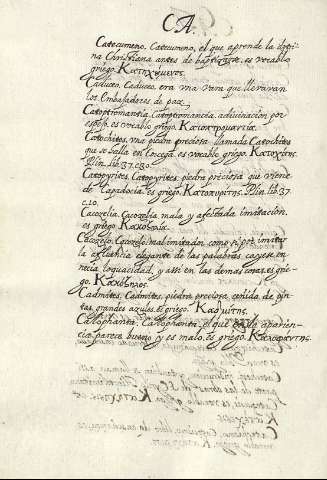 CA.
Catecumeno, Catecumeno, el que aprende la dotri
na Christiana antes de baptizarse, es vocablo
griego. Κατηχουμενος.
Caduceo, Caduceo, era una vara que llevavan
los Embaxadores de paz.
Catoptromantia, Catoptromancia, adivinacion por
espejo, es vocablo griego. Κατοπτρομαντια.
Catochites, una piedra preciosa llamada Catochites
que se halla en Corcega, es vocablo griego. Κατοχιτης.
Plin. lib. 37. c. 10.
Catopyrites, Catopyrites, piedra preciosa que viene
de Capadocia, es griego. Κατοπυριτης. Plin. lib. 37
c. 10.
Cacozelia, Cacozelia mala y afectada imitacion,
es griego. Κακοζηλια.
Cacozelo, Cacozelo, mal imitador, como si por imitar
la afluencia elegante de las palabras cayese en
necia loquacidad, y assi en las demas cosas, es grie-
go. Κακοζηλος.
Cadmites, Cadmites, piedra preciosa, ceñida de pin-
tas grandes azules, es griego. Καδμιτης.
Calophanta, Calophanta, el que en la aparien-
cia parece bueno y es malo, es griego. Καλοφαντης.